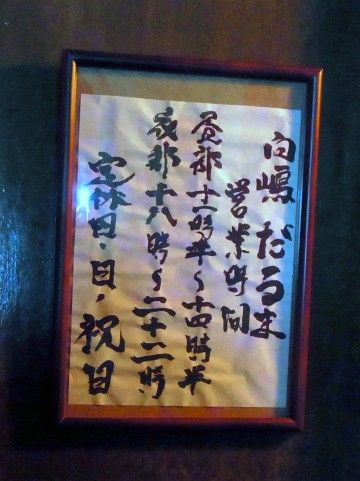 向嶋 だるま
営業時間
昼部 十一時半〜十四時半
夜部 十八時〜二十二時
定休日・日・祝日